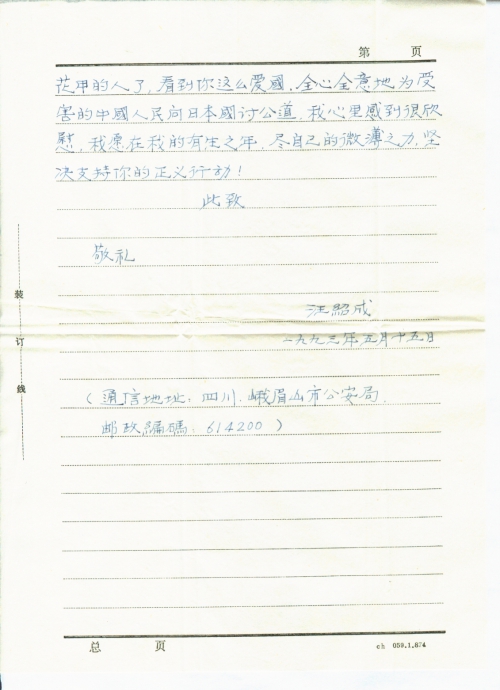 第 页
花甲的人了，看到你这么爱國，全心全意地为受
害的中國人民向日本國讨公道，我心里感到很欣
慰，我愿在我的有生之年，尽自己的微薄之力，坚
决支持你的正义行动！
此致
敬礼
汪紹成
一九九三年五月十五日
（通信地址：四川．峨眉山市公安局．
邮政編碼：614200）
装
订
线
总 页
ch 059.1.874